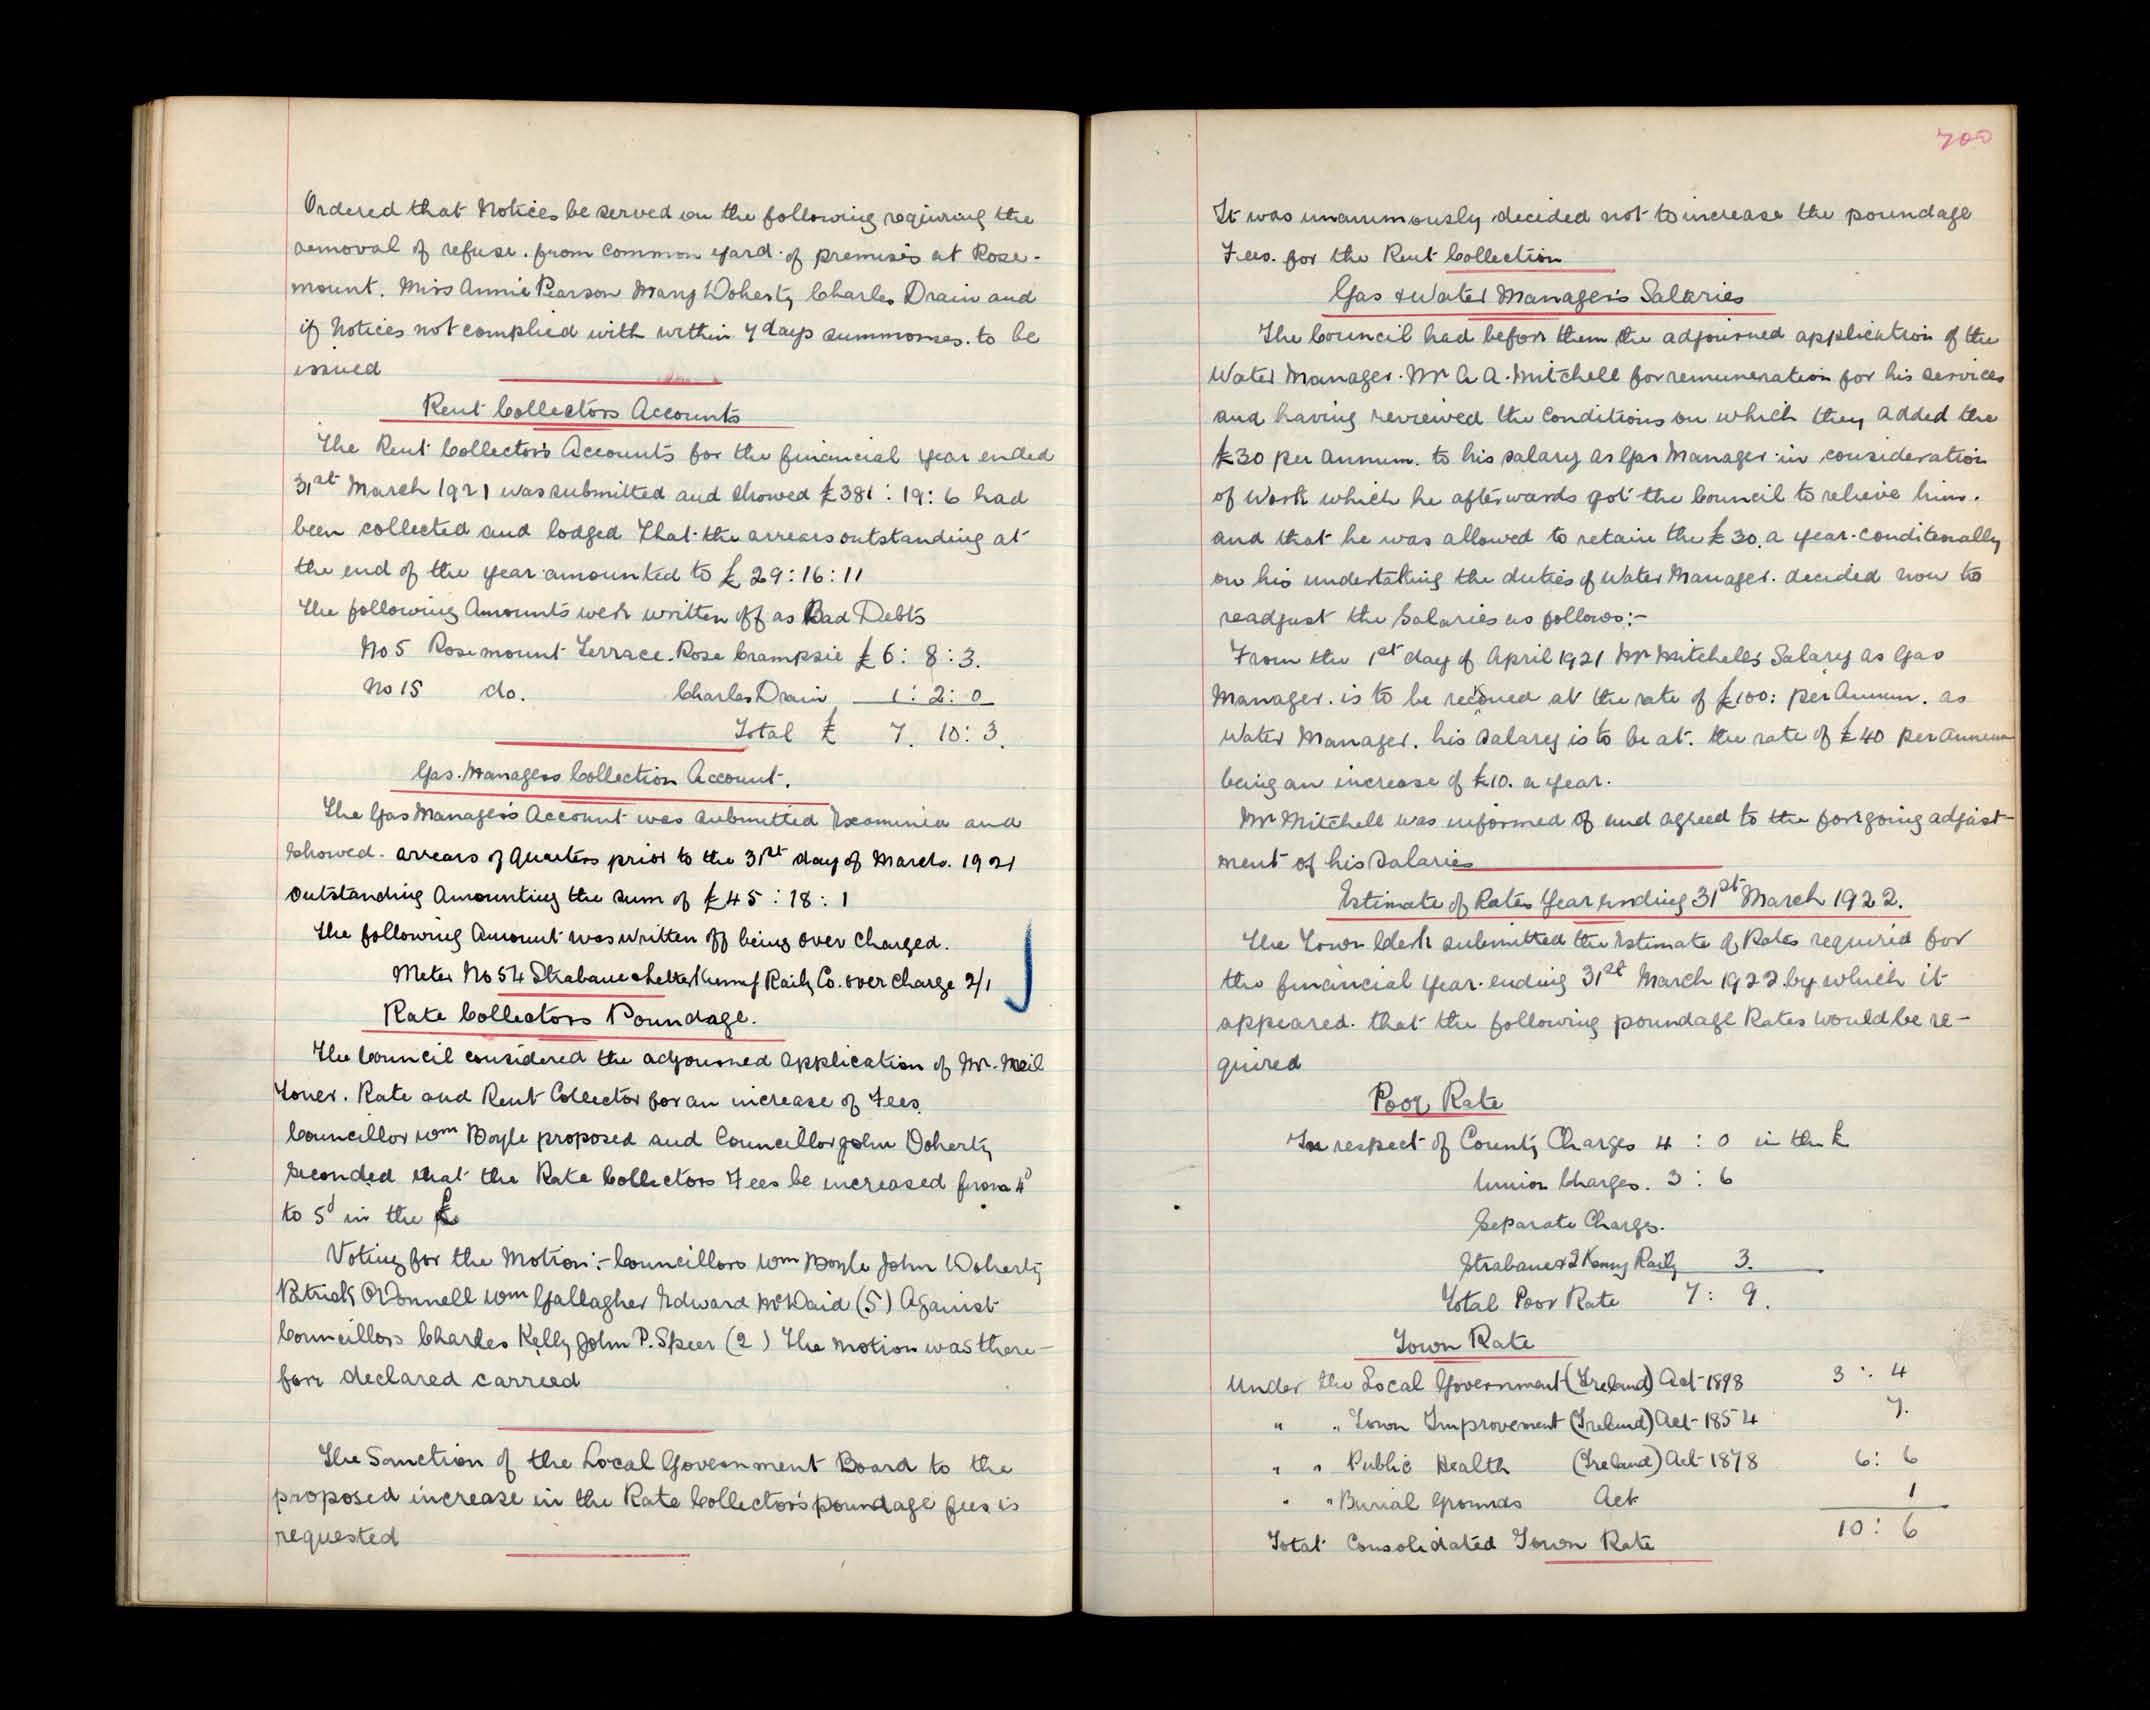 Ordered that Notices be served on the following requiring the
removal of refuse. from common yard. of premises at Rose-
mount. Miss Annie Pearson Mary Doherty Charles Drain and
if Notices not complied with within 7 days summonses. to be
issued
Rent Collectors Accounts
The Rent Collector's Accounts for the financial year ended
31st March 1921 was submitted and showed £381 : 19 : 6 had
been collected and lodged That the arrears outstanding at
the end of the year amounted to £ 29 : 16 : 11
The following Amounts were written off as Bad Debts
No 5 Rosemount Terrace. Rose Crampsie £ 6 : 8 : 3.
No 15 do. Charles Drain 1 : 2 : 0
Total £ 7. 10 : 3.
Gas. Managers Collection Account.
The Gas Manager's Account was submitted Examined and
showed. arrears of Quarters prior to the 31st day of March. 1921
outstanding Amounting the sum of £45 : 18 : 1
The following Amount was written off being over charged.
Meter No 54 Strabane & Letterkenny Raily Co. over charge 2/1
Rate Collectors Poundage.
The Council considered the adjourned application of Mr. Neil
Toner. Rate and Rent Collector for an increase of Fees
Councillor Wm Boyle proposed and Councillor John Doherty
seconded that the Rate Collectors Fees be increased from 4d
to 5d in the £
Voting for the Motion :- Councillors Wm Boyle John Doherty
Patrick O'Donnell Wm Gallagher Edward McDaid (5) Against
Councillors Charles Kelly John P. Speer (2) The Motion was there-
fore declared carried
The Sanction of the Local Government Board to the
proposed increase in the Rate Collector's poundage fees is
requested
700
It was unanimously decided not to increase the poundage
Fees. for the Rent Collection
Gas & Water Manager's Salaries
The Council had before them the adjourned application of the
Water Manager. Mr A A. Mitchell for remuneration for his services
and having reviewed the conditions on which they added the
£30 per annum. to his salary as Gas Manager in consideration
of work which he afterwards got the Council to relieve him.
and that he was allowed to retain the £30. a year. conditonally
on his undertaking the duties of Water Manager. decided now to
readjust the Salaries as follows :-
From the 1st day of April 1921 Mr Mitchells Salary as Gas
Manager. is to be reconed at the rate of £100 : per Annum. as
Water Manager. his salary is to be at. the rate of £40 per annum
being an increase of £10. a year.
Mr Mitchell was informed of and agreed to the foregoing adjust-
ment of his salaries
Estimate of Rates Year Ending 31st March 1922.
The Town Clerk submitted the Estimate of Rates required for
the financial year. ending 31st March 1922 by which it
appeared. that the following poundage Rates would be re-
quired
Poor Rate
In respect of County Charges 4 : 0 in the £
Union Charges. 3 : 6
Separate Charges.
Strabane & L Kenny Raily 3.
Total Poor Rate 7 : 9.
Town Rate
Under the Local Government (Ireland) Act 1898 3 : 4
" " Town Improvement (Ireland) Act 1854 7.
" " Public Health (Ireland) Act 1878 6 : 6
" " Burial Grounds Act 1
Total Consolidated Town Rate 10 : 6